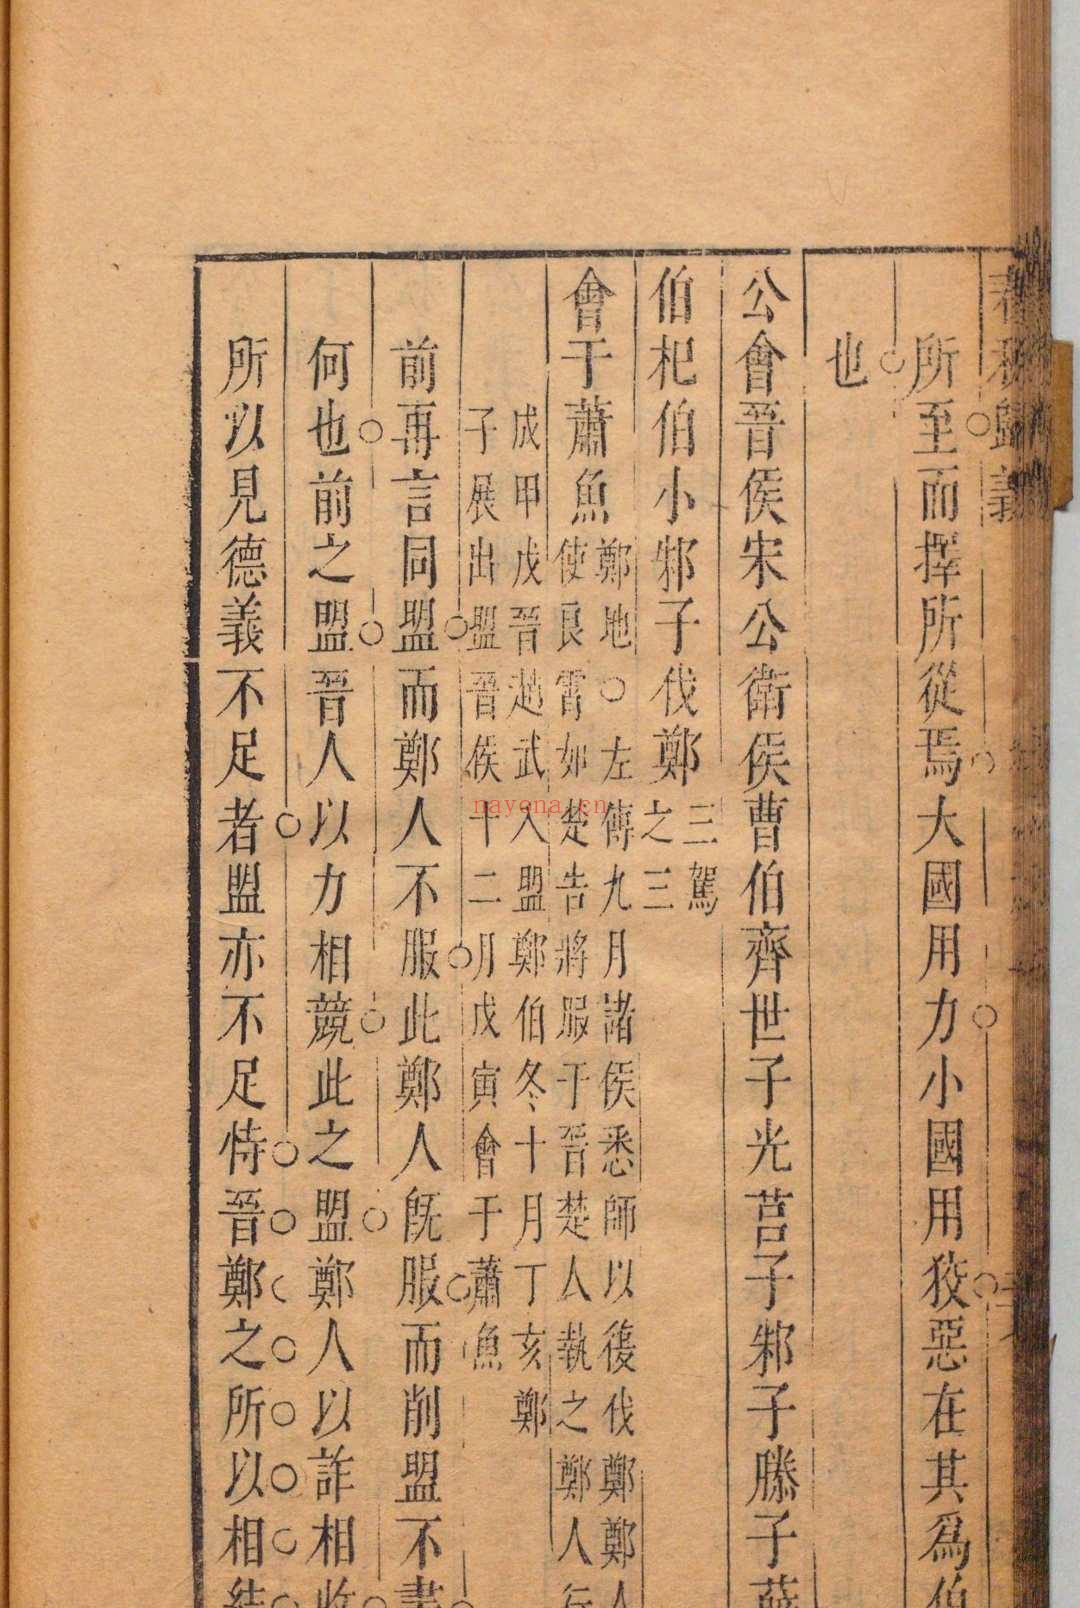 春秋歸義
所至而擇所從焉大國用力小國用狡惡在其爲伯
也
公會晉侯宋公衛侯曹伯齊世子光莒子邾子滕子薛
伯杞伯小邾子伐鄭
三駕
之三
會于蕭魚
鄭地○左傳九月諸侯悉師以復伐鄭鄭人
使良霄如楚告將服于晉楚人執之鄭人行
成甲戌晉趙武入盟鄭伯冬十月丁亥鄭
子展出盟晉侯十二月戊寅會于蕭魚
前再言同盟而鄭人不服此鄭人旣服而削盟不書
何也前之盟晉人以力相競此之盟鄭人以詐相收
所以見德義不足者盟亦不足恃晉鄭之所以相結
nayona.cn